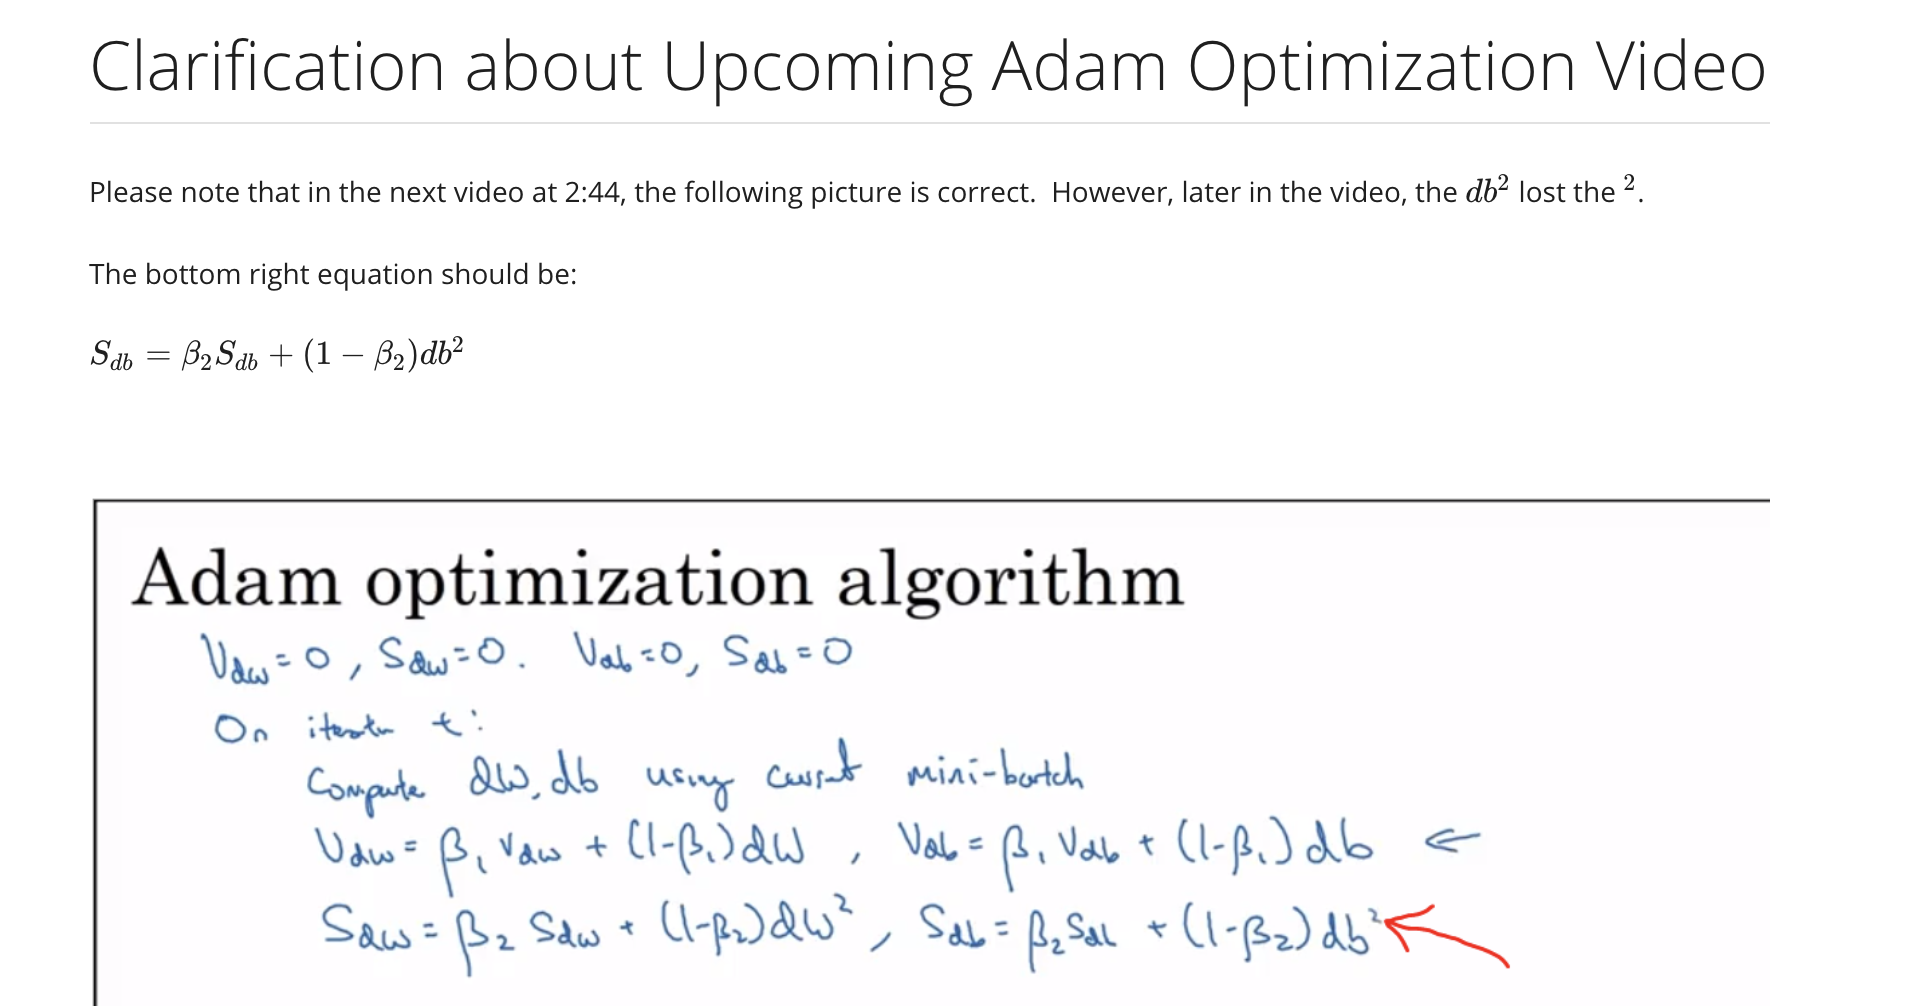 Clarification about Upcoming Adam Optimization Video
Please note that in the next video at 2:44, the following picture is correct.  However, later in the video, the db² lost the ².
The bottom right equation should be:
S_db = β₂S_db + (1 − β₂)db²
Adam optimization algorithm
V_dw = 0, S_dw = 0. V_db = 0, S_db = 0
On iteratn t:
Compute dW, db using current mini-batch
V_dw = β₁ V_dw + (1-β₁) dW , V_db = β₁ V_db + (1-β₁) db ←
S_dw = β₂ S_dw + (1-β₂) dW² , S_db = β₂ S_db + (1-β₂) db²